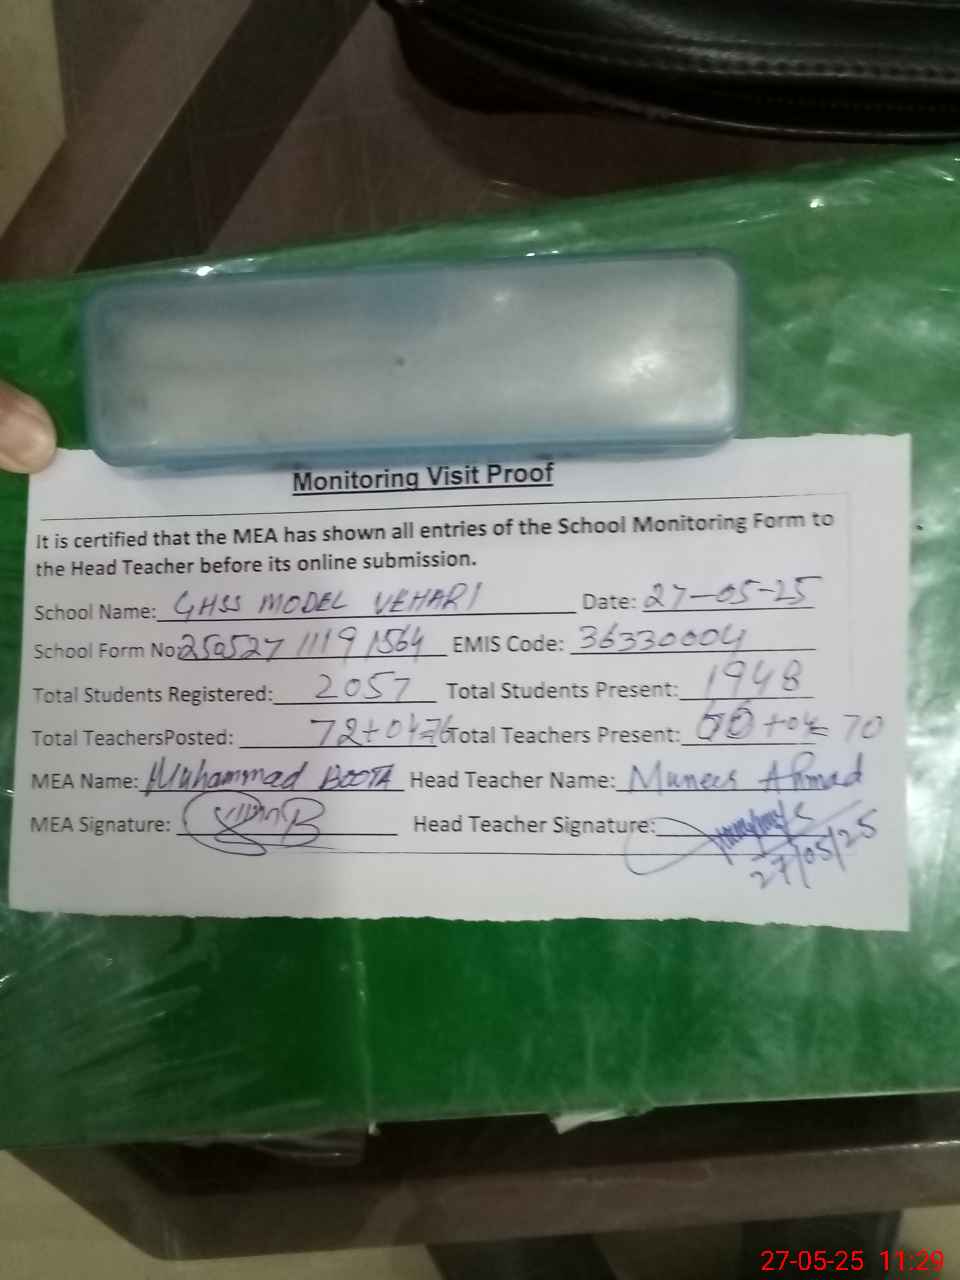 Monitoring Visit Proof
It is certified that the MEA has shown all entries of the School Monitoring Form to
the Head Teacher before its online submission.
School Name: GHSS MODEL VEHARI Date: 27-05-25
School Form No: 250527 1119 1564 EMIS Code: 36330004
Total Students Registered: 2057 Total Students Present: 1948
Total TeachersPosted: 72+04=76 Total Teachers Present: +04= 70
MEA Name: Muhammad BOOTA Head Teacher Name: Muneer Ahmad
MEA Signature: Head Teacher Signature:
27/05/25
27-05-25 11:29